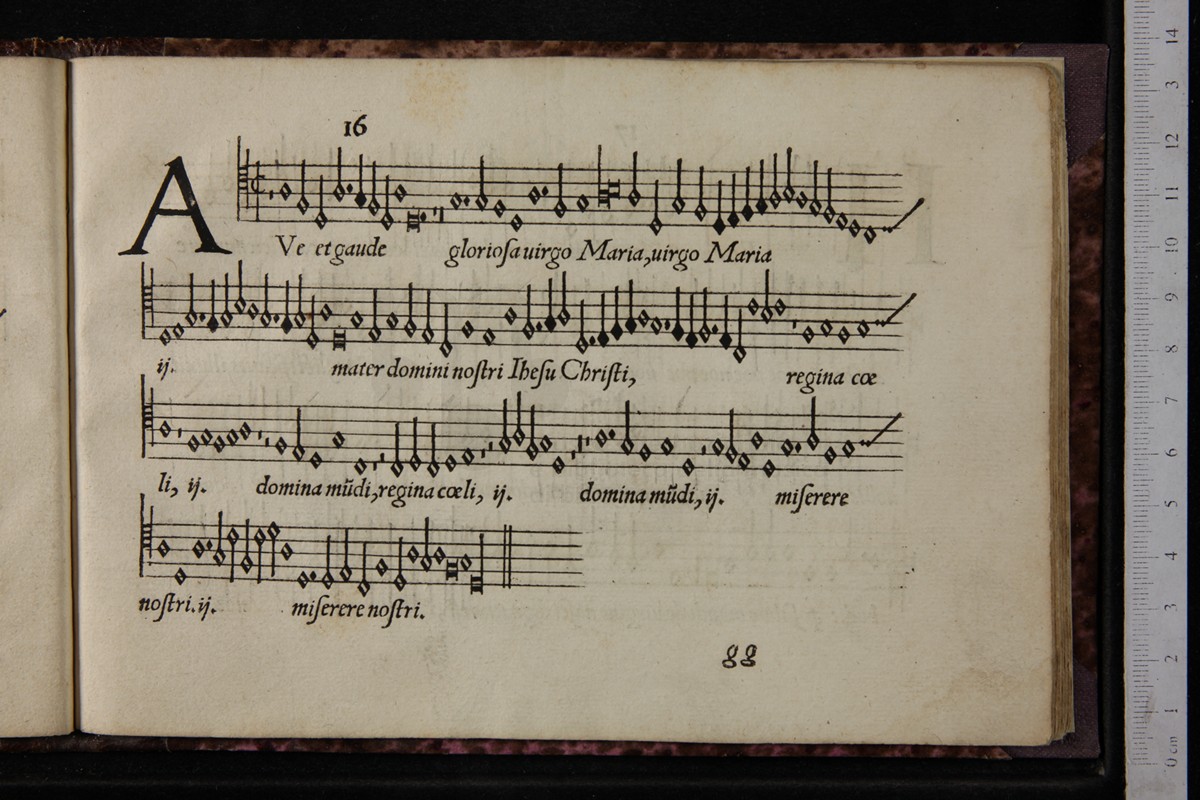 16
AVe et gaude glorioſa uirgo Maria, uirgo Maria
ij. mater domini noſtri Iheſu Chriſti, regina cœ
li, ij. domina mũdi, regina cœli, ij. domina mũdi, ij. miſerere
noſtri. ij. miſerere noſtri.
gg
0 cm 1 2 3 4 5 6 7 8 9 10 11 12 3 14